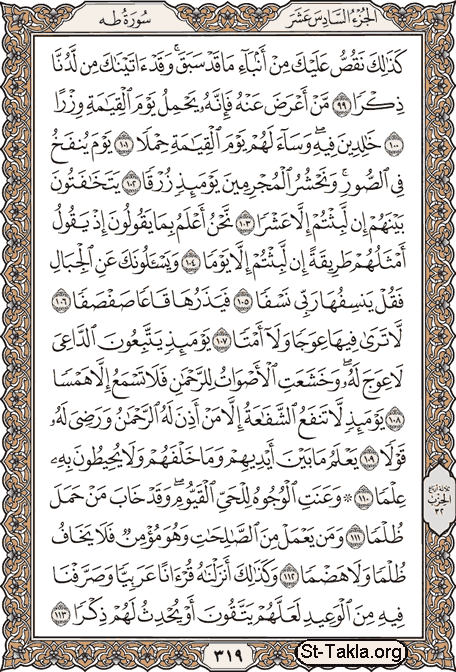 الجزء السادس عشر
سورة طه
كَذَٰلِكَ نَقُصُّ عَلَيْكَ مِنْ أَنۢبَآءِ مَا قَدْ سَبَقَ ۚ وَقَدْ ءَاتَيْنَٰكَ مِن لَّدُنَّا
ذِكْرًا ٩٩ مَّنْ أَعْرَضَ عَنْهُ فَإِنَّهُۥ يَحْمِلُ يَوْمَ ٱلْقِيَٰمَةِ وِزْرًا
١٠٠ خَٰلِدِينَ فِيهِ ۖ وَسَآءَ لَهُمْ يَوْمَ ٱلْقِيَٰمَةِ حِمْلًا ١٠١ يَوْمَ يُنفَخُ
فِى ٱلصُّورِ ۚ وَنَحْشُرُ ٱلْمُجْرِمِينَ يَوْمَئِذٍ زُرْقًا ١٠٢ يَتَخَٰفَتُونَ
بَيْنَهُمْ إِن لَّبِثْتُمْ إِلَّا عَشْرًا ١٠٣ نَّحْنُ أَعْلَمُ بِمَا يَقُولُونَ إِذْ يَقُولُ
أَمْثَلُهُمْ طَرِيقَةً إِن لَّبِثْتُمْ إِلَّا يَوْمًا ١٠٤ وَيَسْـَٔلُونَكَ عَنِ ٱلْجِبَالِ
فَقُلْ يَنسِفُهَا رَبِّى نَسْفًا ١٠٥ فَيَذَرُهَا قَاعًا صَفْصَفًا ١٠٦
لَّا تَرَىٰ فِيهَا عِوَجًا وَلَآ أَمْتًا ١٠٧ يَوْمَئِذٍ يَتَّبِعُونَ ٱلدَّاعِىَ
لَا عِوَجَ لَهُۥ ۖ وَخَشَعَتِ ٱلْأَصْوَاتُ لِلرَّحْمَٰنِ فَلَا تَسْمَعُ إِلَّا هَمْسًا
١٠٨ يَوْمَئِذٍ لَّا تَنفَعُ ٱلشَّفَٰعَةُ إِلَّا مَنْ أَذِنَ لَهُ ٱلرَّحْمَٰنُ وَرَضِىَ لَهُۥ
قَوْلًا ١٠٩ يَعْلَمُ مَا بَيْنَ أَيْدِيهِمْ وَمَا خَلْفَهُمْ وَلَا يُحِيطُونَ بِهِۦ
عِلْمًا ١١٠ ۞ وَعَنَتِ ٱلْوُجُوهُ لِلْحَىِّ ٱلْقَيُّومِ ۖ وَقَدْ خَابَ مَنْ حَمَلَ
ظُلْمًا ١١١ وَمَن يَعْمَلْ مِنَ ٱلصَّٰلِحَٰتِ وَهُوَ مُؤْمِنٌ فَلَا يَخَافُ
ظُلْمًا وَلَا هَضْمًا ١١٢ وَكَذَٰلِكَ أَنزَلْنَٰهُ قُرْءَانًا عَرَبِيًّا وَصَرَّفْنَا
فِيهِ مِنَ ٱلْوَعِيدِ لَعَلَّهُمْ يَتَّقُونَ أَوْ يُحْدِثُ لَهُمْ ذِكْرًا ١١٣
الحزب
٣٢
٣١٩
St-Takla.org